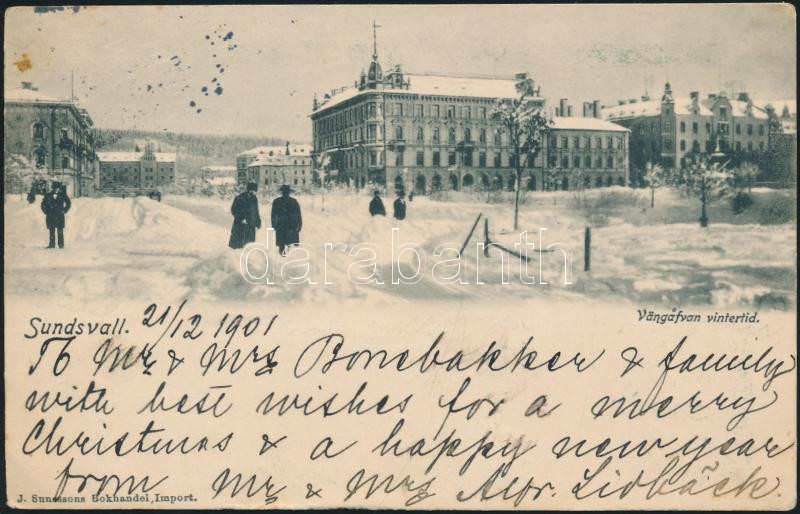 darabanth
Sundsvall. 21/12 1901
Vängåfvan vintertid.
To Mr & Mrs Bonebakker & family
with best wishes for a merry
Christmas & a happy new year
from Mr & Mrs Albr. Lidbäck.
J. Sundssons Bokhandel, Import.